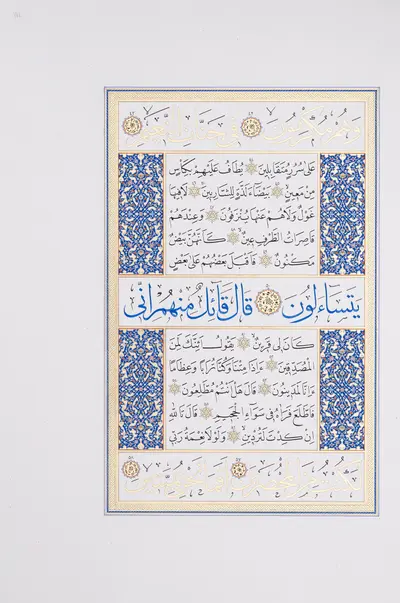 وَهُمْ مُكْرَمُونَ فِي جَنَّاتِ النَّعِيمِ
عَلَى سُرُرٍ مُتَقَابِلِينَ يُطَافُ عَلَيْهِمْ بِكَأْسٍ
مِنْ مَعِينٍ بَيْضَاءَ لَذَّةٍ لِلشَّارِبِينَ لَا فِيهَا
غَوْلٌ وَلَا هُمْ عَنْهَا يُنْزَفُونَ وَعِنْدَهُمْ
قَاصِرَاتُ الطَّرْفِ عِينٌ كَأَنَّهُنَّ بَيْضٌ
مَكْنُونٌ فَأَقْبَلَ بَعْضُهُمْ عَلَى بَعْضٍ
يَتَسَاءَلُونَ قَالَ قَائِلٌ مِنْهُمْ إِنِّي
كَانَ لِي قَرِينٌ يَقُولُ أَئِنَّكَ لَمِنَ
الْمُصَدِّقِينَ ءَإِذَا مِتْنَا وَكُنَّا تُرَابًا وَعِظَامًا
ءَإِنَّا لَمَدِينُونَ قَالَ هَلْ أَنْتُمْ مُطَّلِعُونَ
فَاطَّلَعَ فَرَءَاهُ فِي سَوَاءِ الْجَحِيمِ قَالَ تَاللَّهِ
إِنْ كِدْتَ لَتُرْدِينِ وَلَوْلَا نِعْمَةُ رَبِّي